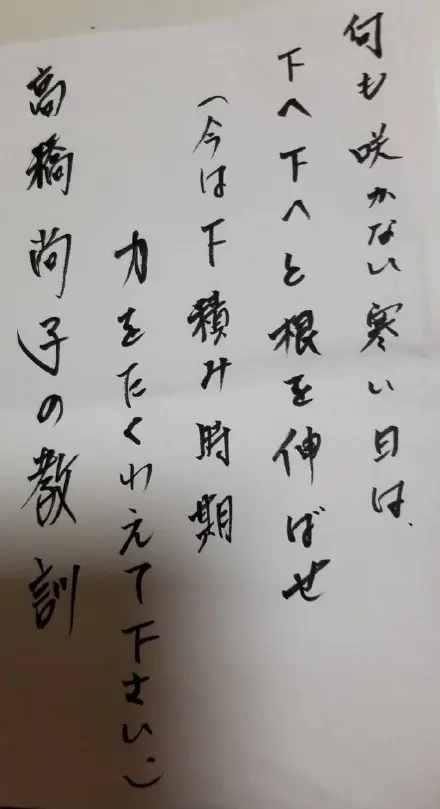 何も咲かない寒い日は、
下へ下へと根を伸ばせ
(今は下積み時期
力をたくわえて下さい)
高橋尚子の教訓